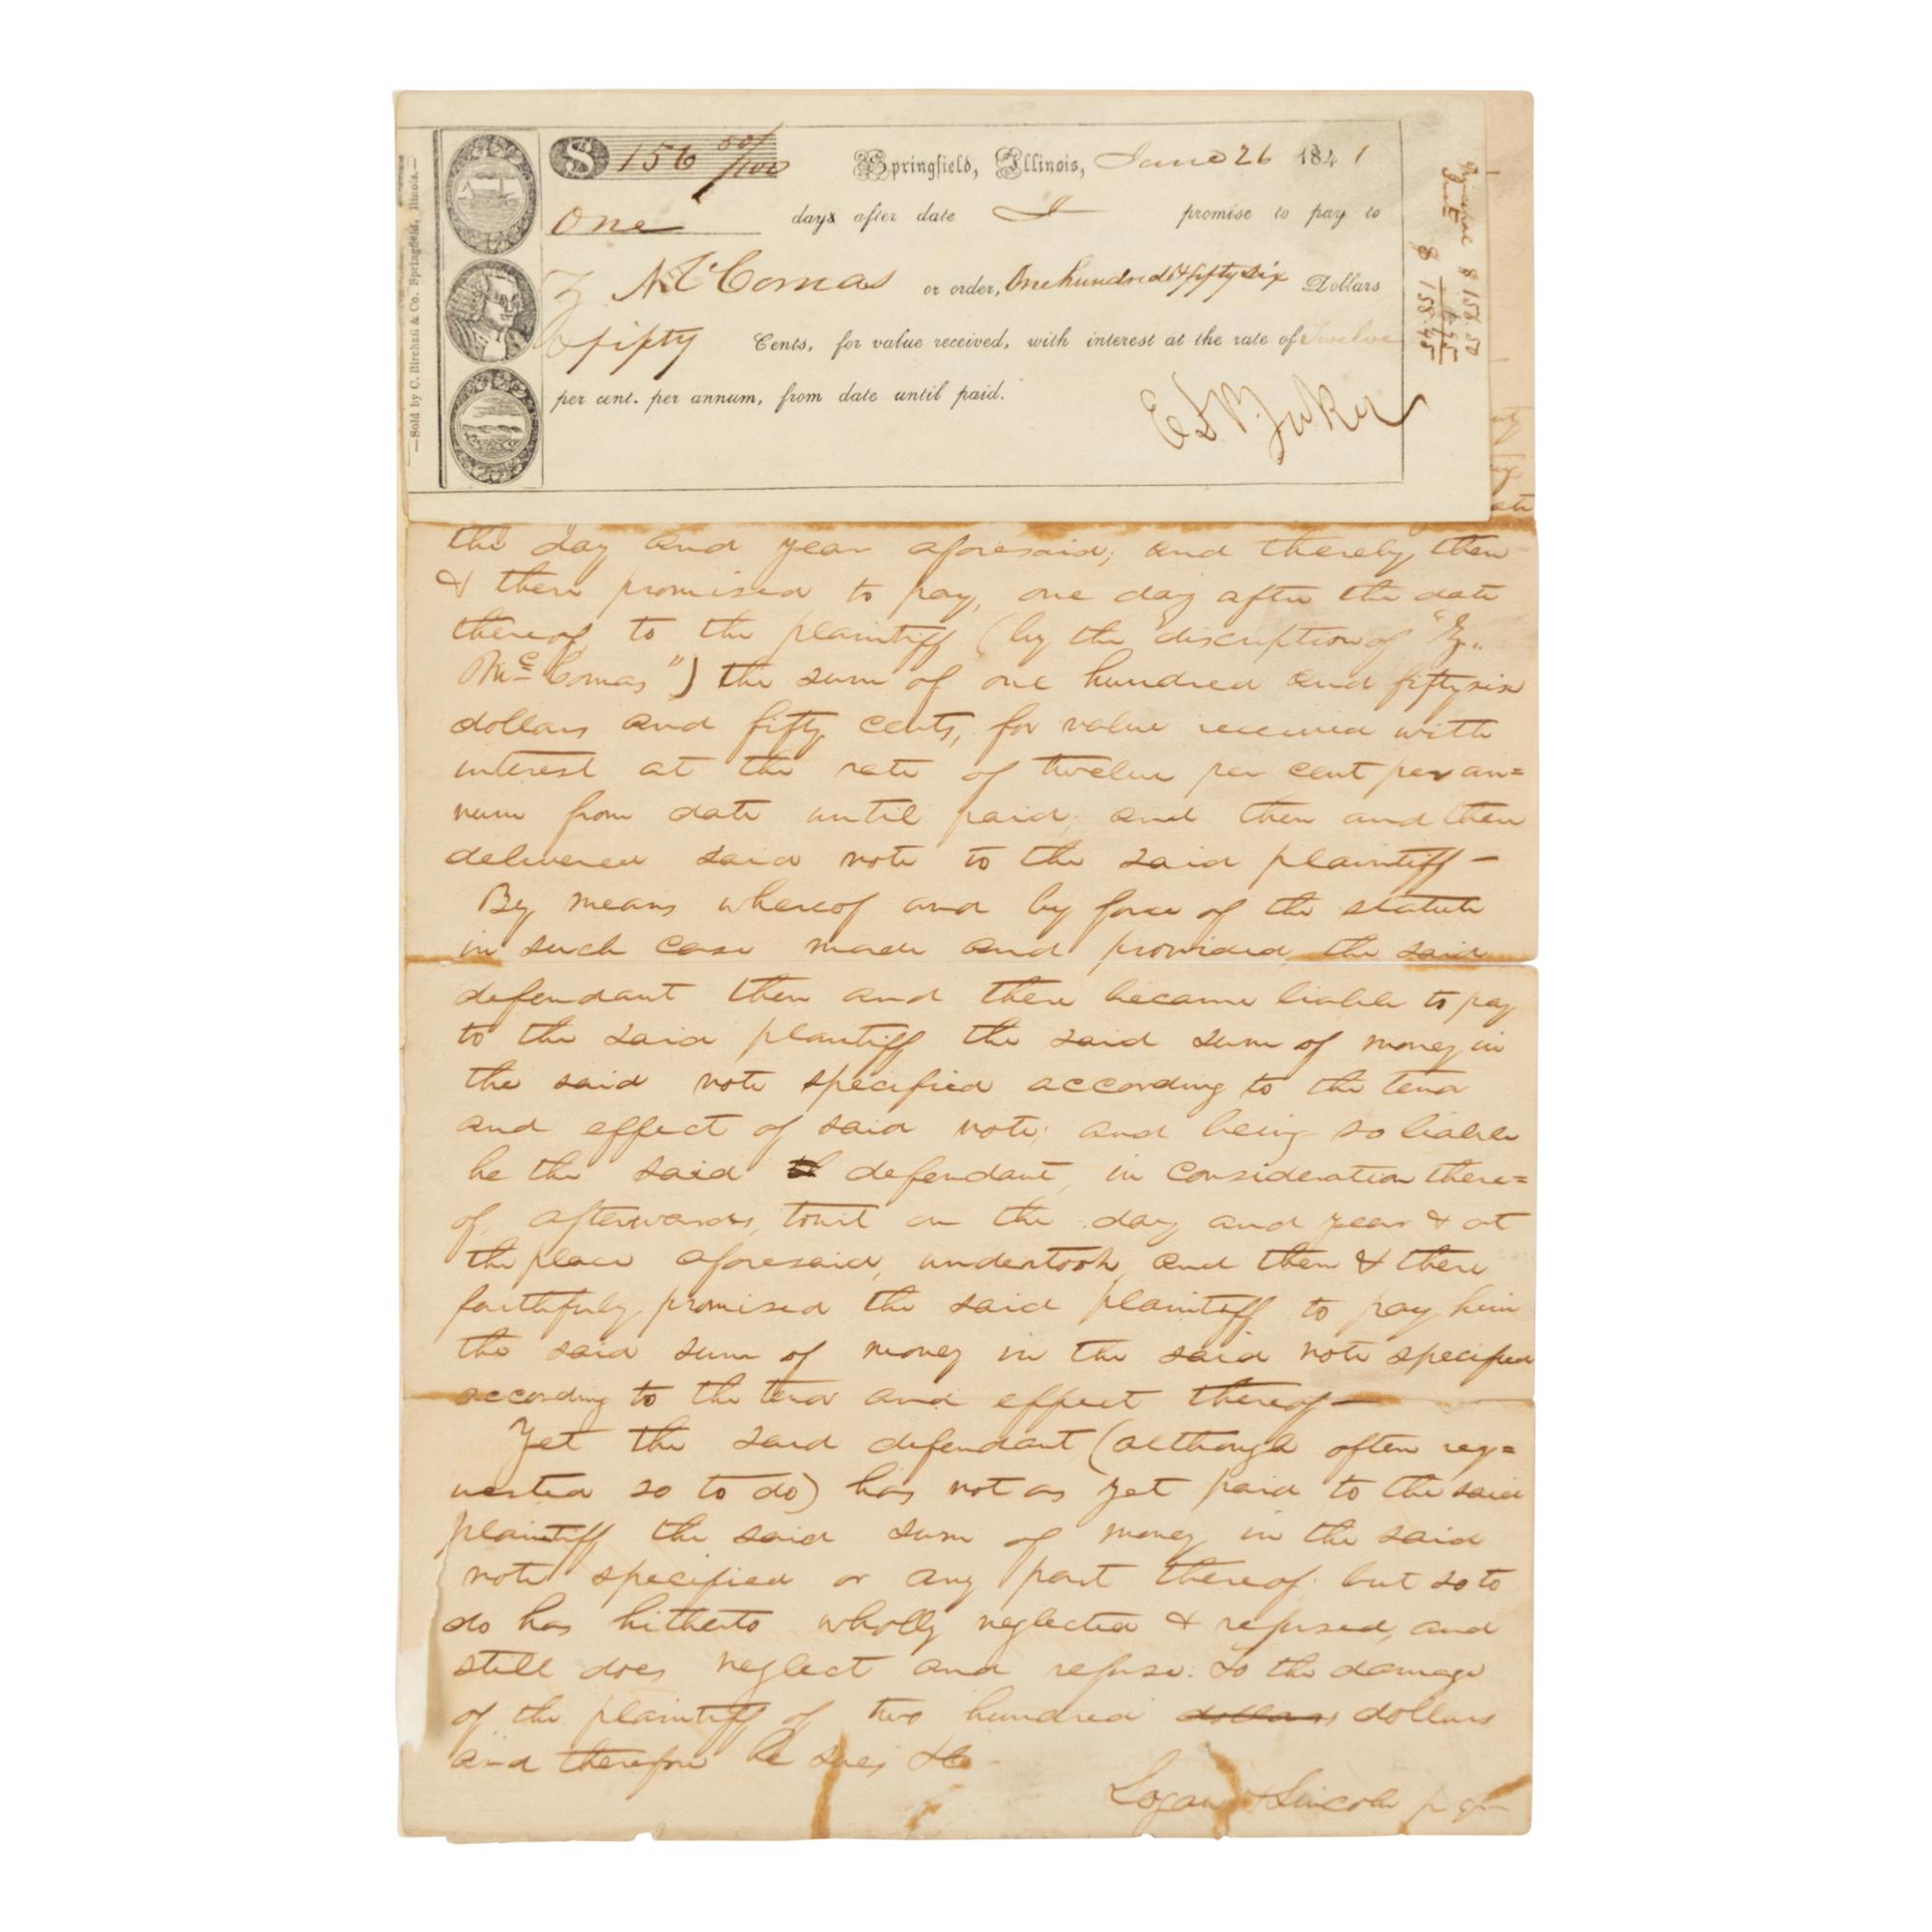 —Sold by C. Birchall & Co. Springfield, Illinois.—
$ 156 50/100 Springfield, Illinois, June 26 1841
One days after date I promise to pay to
Z McComas or order, One hundred & fifty six Dollars
& fifty Cents, for value received, with interest at the rate of Twelve
per cent. per annum, from date until paid.
E D Baker
Principal $ 156.50
Int 1.95
$ 158.45
the day and year aforesaid; and thereby then
& there promised to pay, one day after the date
thereof, to the plaintiff (by the discription of "Z..
McComas") the sum of one hundred and fifty six
dollars and fifty cents, for value received with
interest at the rate of twelve per cent per an=
num from date until paid; and then and there
delivered said note to the said plaintiff—
By means whereof and by force of the statute
in such case made and provided, the said
defendant then and there became liable to pay
to the said plantiff the said sum of money in
the said note specified according to the tenor
and effect of said note; and being so liable
he the said defendant, in consideration there=
of, afterwards, towit on the day and year & at
the place aforesaid, undertook, and then & there
faithfuly promised the said plaintiff to pay him
the said sum of money in the said note specified
according to the tenor and effect thereof—
Yet the said defendant (although often req=
uested so to do) has not as yet paid to the said
plaintiff the said sum of money in the said
note specified or any part thereof; but so to
do has hitherto wholly neglected & refused, and
still does neglect and refuse. To the damage
of the plaintiff of two hundred dollars dollars
and therefore he sues &c
Logan & Lincoln p.q—